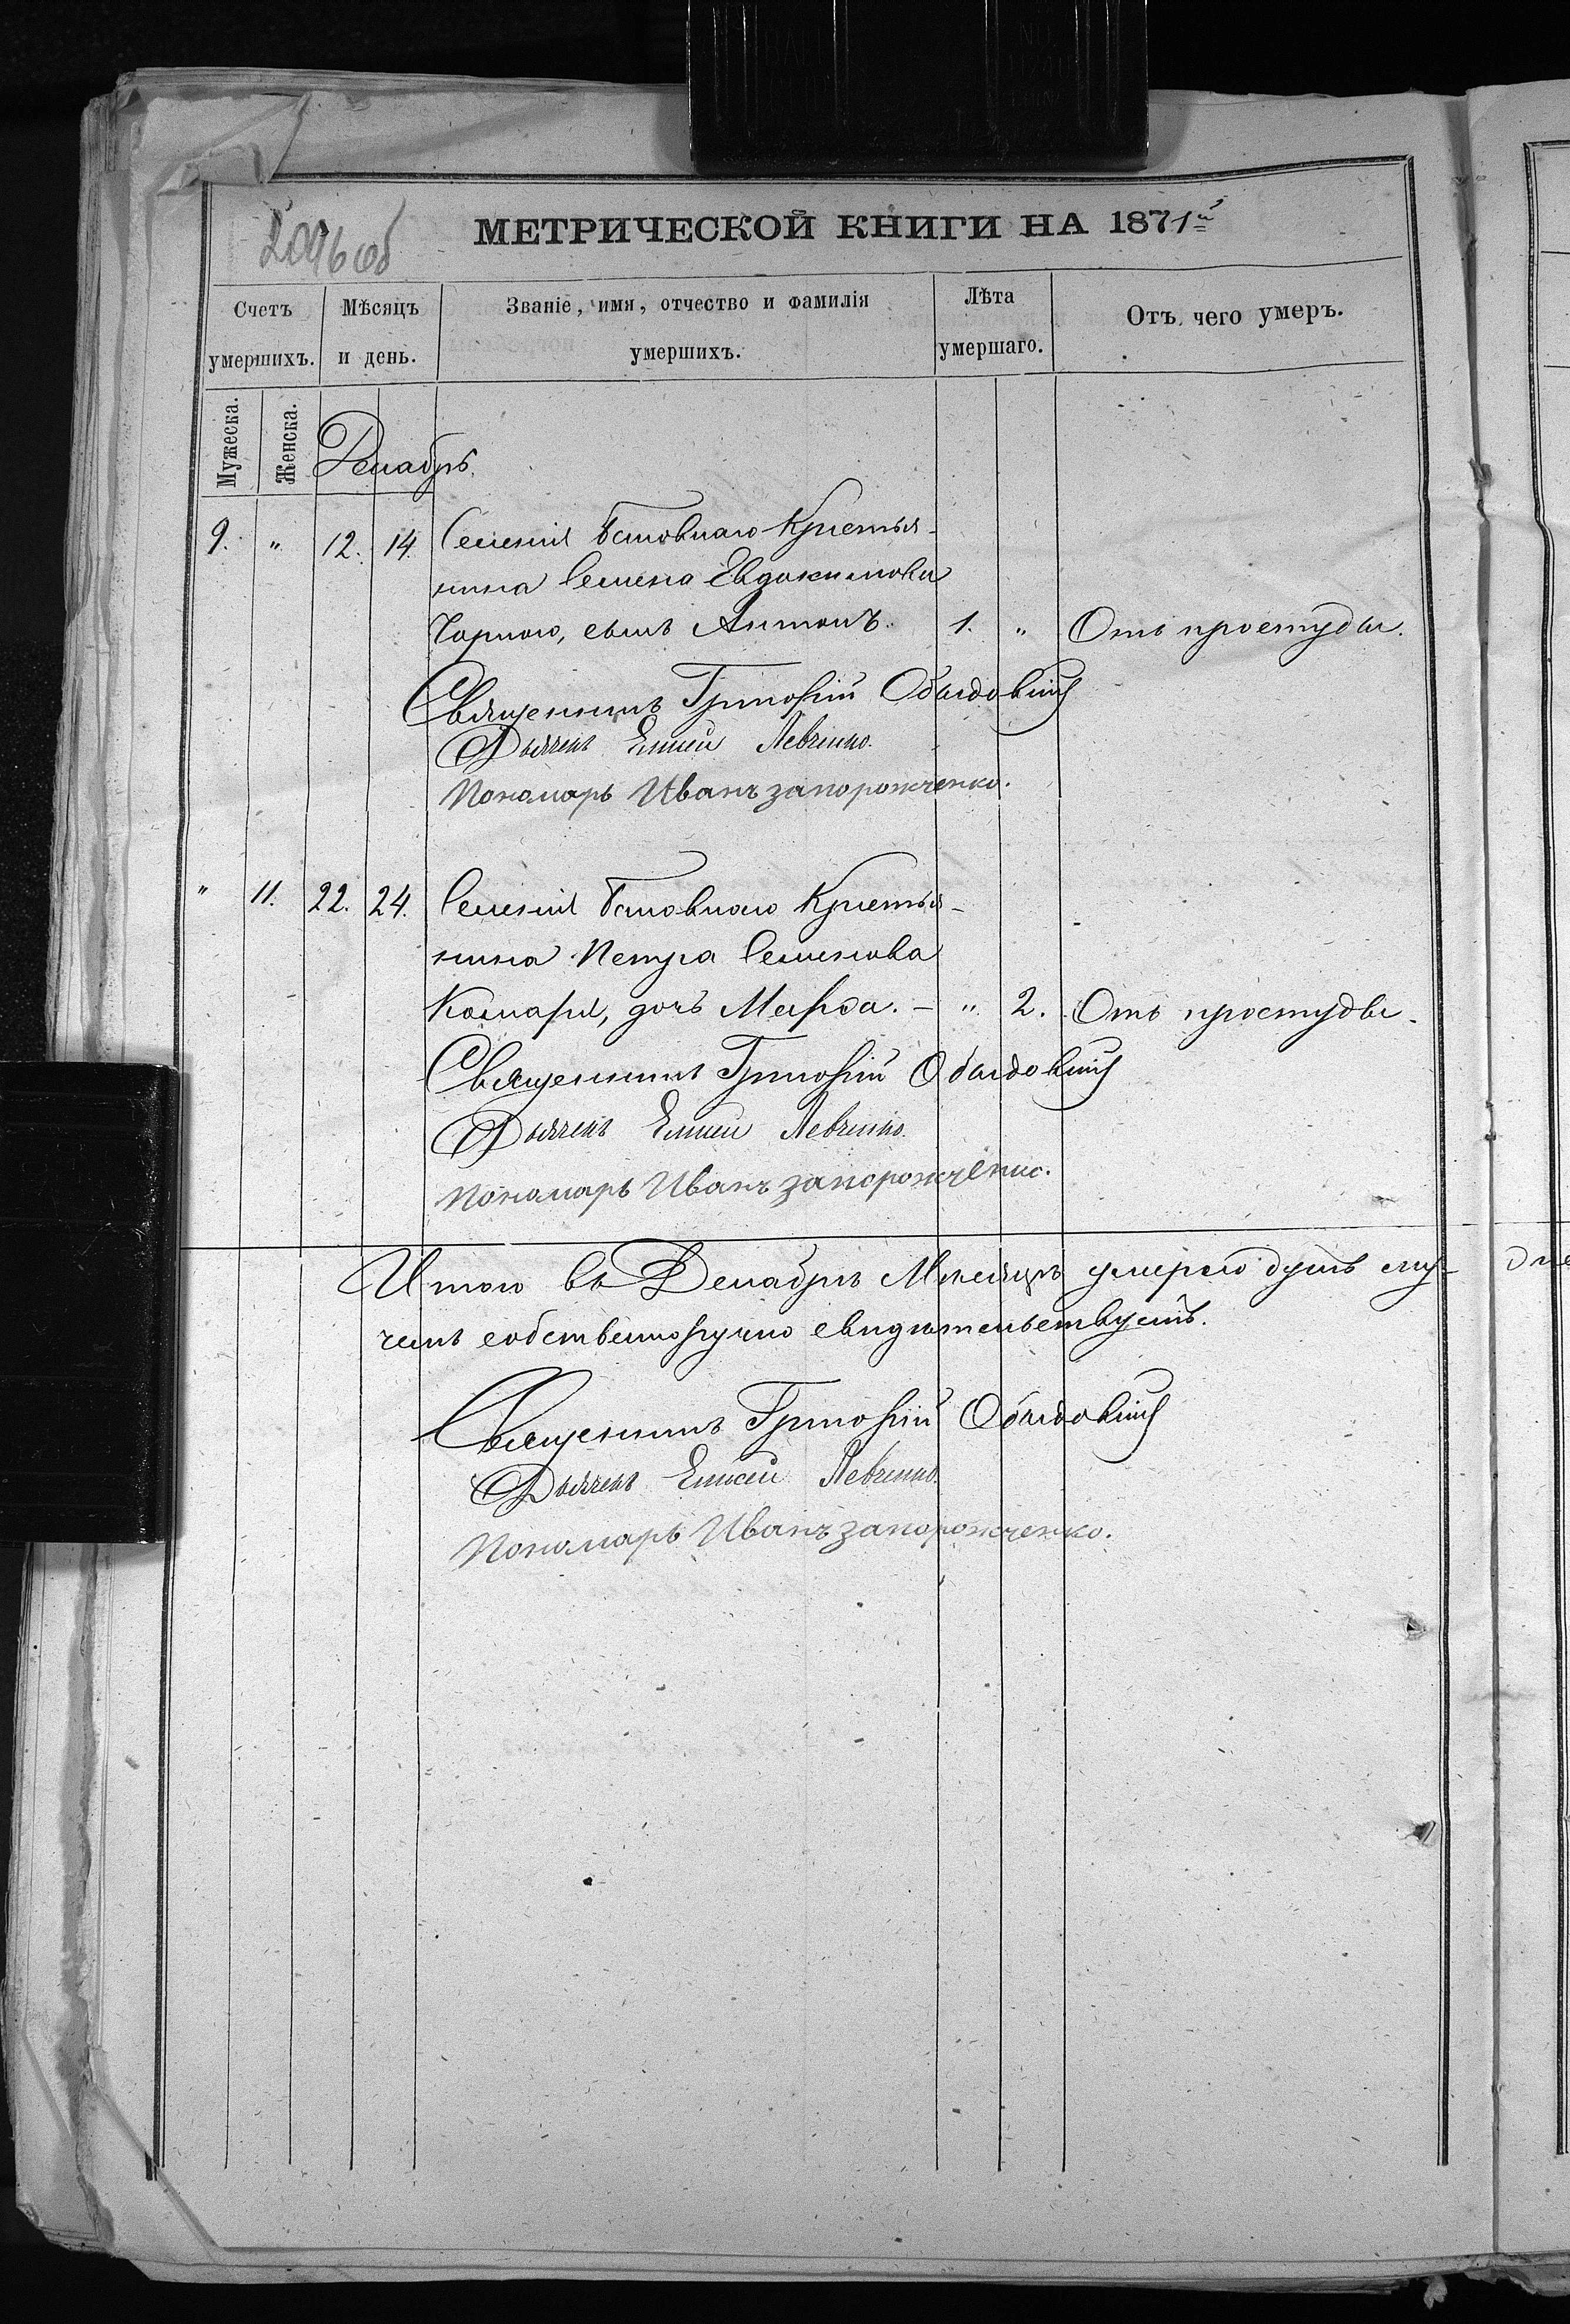 2096 об
МЕТРИЧЕСКОЙ КНИГИ НА 1871й
Счетъ умершихъ.
Мѣсяцъ и день.
Званіе, имя, отчество и фамилія умершихъ.
Лѣта умершаго.
Отъ чего умеръ.
Мужеска.
Женска.
Декабрь.
9. " 12. 14. Селенія Крестья-
нина Семена Евдокимова
Чорного, сынъ Антонъ. 1. " Отъ простуды.
Священникъ Григорій
Дьячекъ Елисей Левченко.
Пономарь Иванъ запорожченко.
" 11. 22. 24. Селенія Крестья-
нина Петра Семенова
Комаря, дочь Марѳа. – " 2. Отъ простуды.
Священникъ Григорій
Дьячекъ Елисей Левченко.
Пономарь Иванъ запорожченко.
Итого въ Декабрѣ Мѣсяцѣ умерло душъ
собственноручно свидѣтельствуемъ.
Священникъ Григорій
Дьячекъ Елисей Левченко.
Пономарь Иванъ запорожченко.